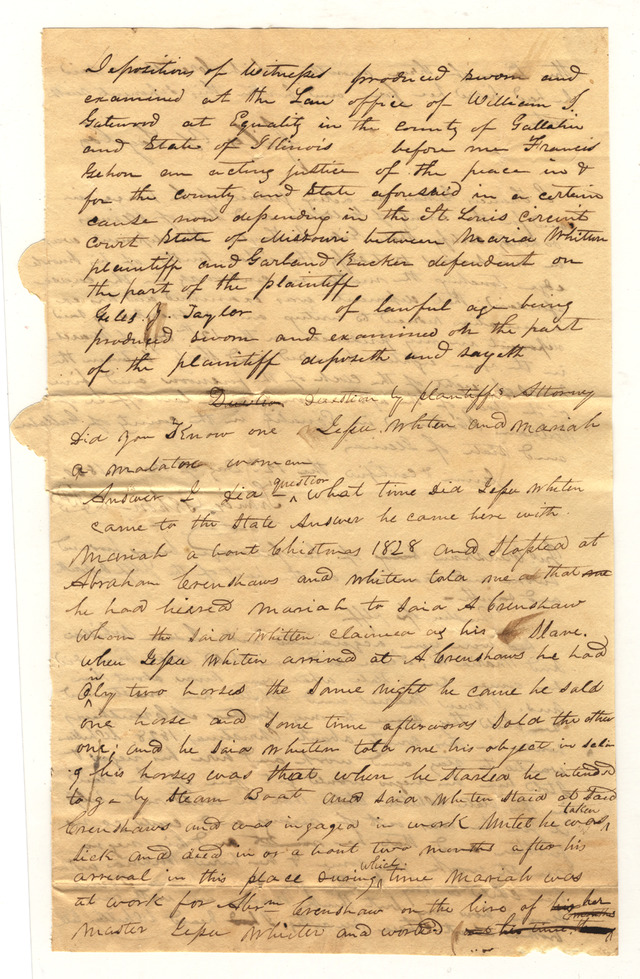 Depositions of Witnesses produced sworn and
examined at the Law office of William J.
Gatewood at Equality in the county of Gallatin
and State of Illinois before me Francis
Gehon an acting justice of the peace in &
for the county and State aforesaid in a certain
cause now depending in the St. Louis circuit
court State of Missouri between Maria Whitten
plaintiff and Garland Rucker defendent on
the part of the plaintiff
Giles Taylor of lawful age being
produced sworn and examined on the part
of the plaintiff deposeth and sayeth
Question by plaintiffs Attorney
Did you Know one Jepse Whiten and Mariah
a malatoe woman
Answer I did question What time did Jepse Whiten
came to the State Answer he came here with
Mariah about Christmas 1828 and Stopted at
Abraham Crenshaws and whiten told me that me
he had heared Mariah to Said A Crenshaw
whom the Said Whitten claimed as his Slave.
When Jepse Whiten arrived at A Crenshaws he had
only two horses the same night he came he sold
one horse and some time afterwords Sold the other
one; and he Said Whitem told me his object in selin
g his horses was that when he started he intended
to go by Steam Boat and Said Whiten Staid at Said
Crenshaws and was ingaged in work Untel he was taken
Sick and died in or about two months after his
arrival in this place during which time Mariah was
at work for Abrm Crenshaw on the hire of his her
Master Jepse Whiter and worked